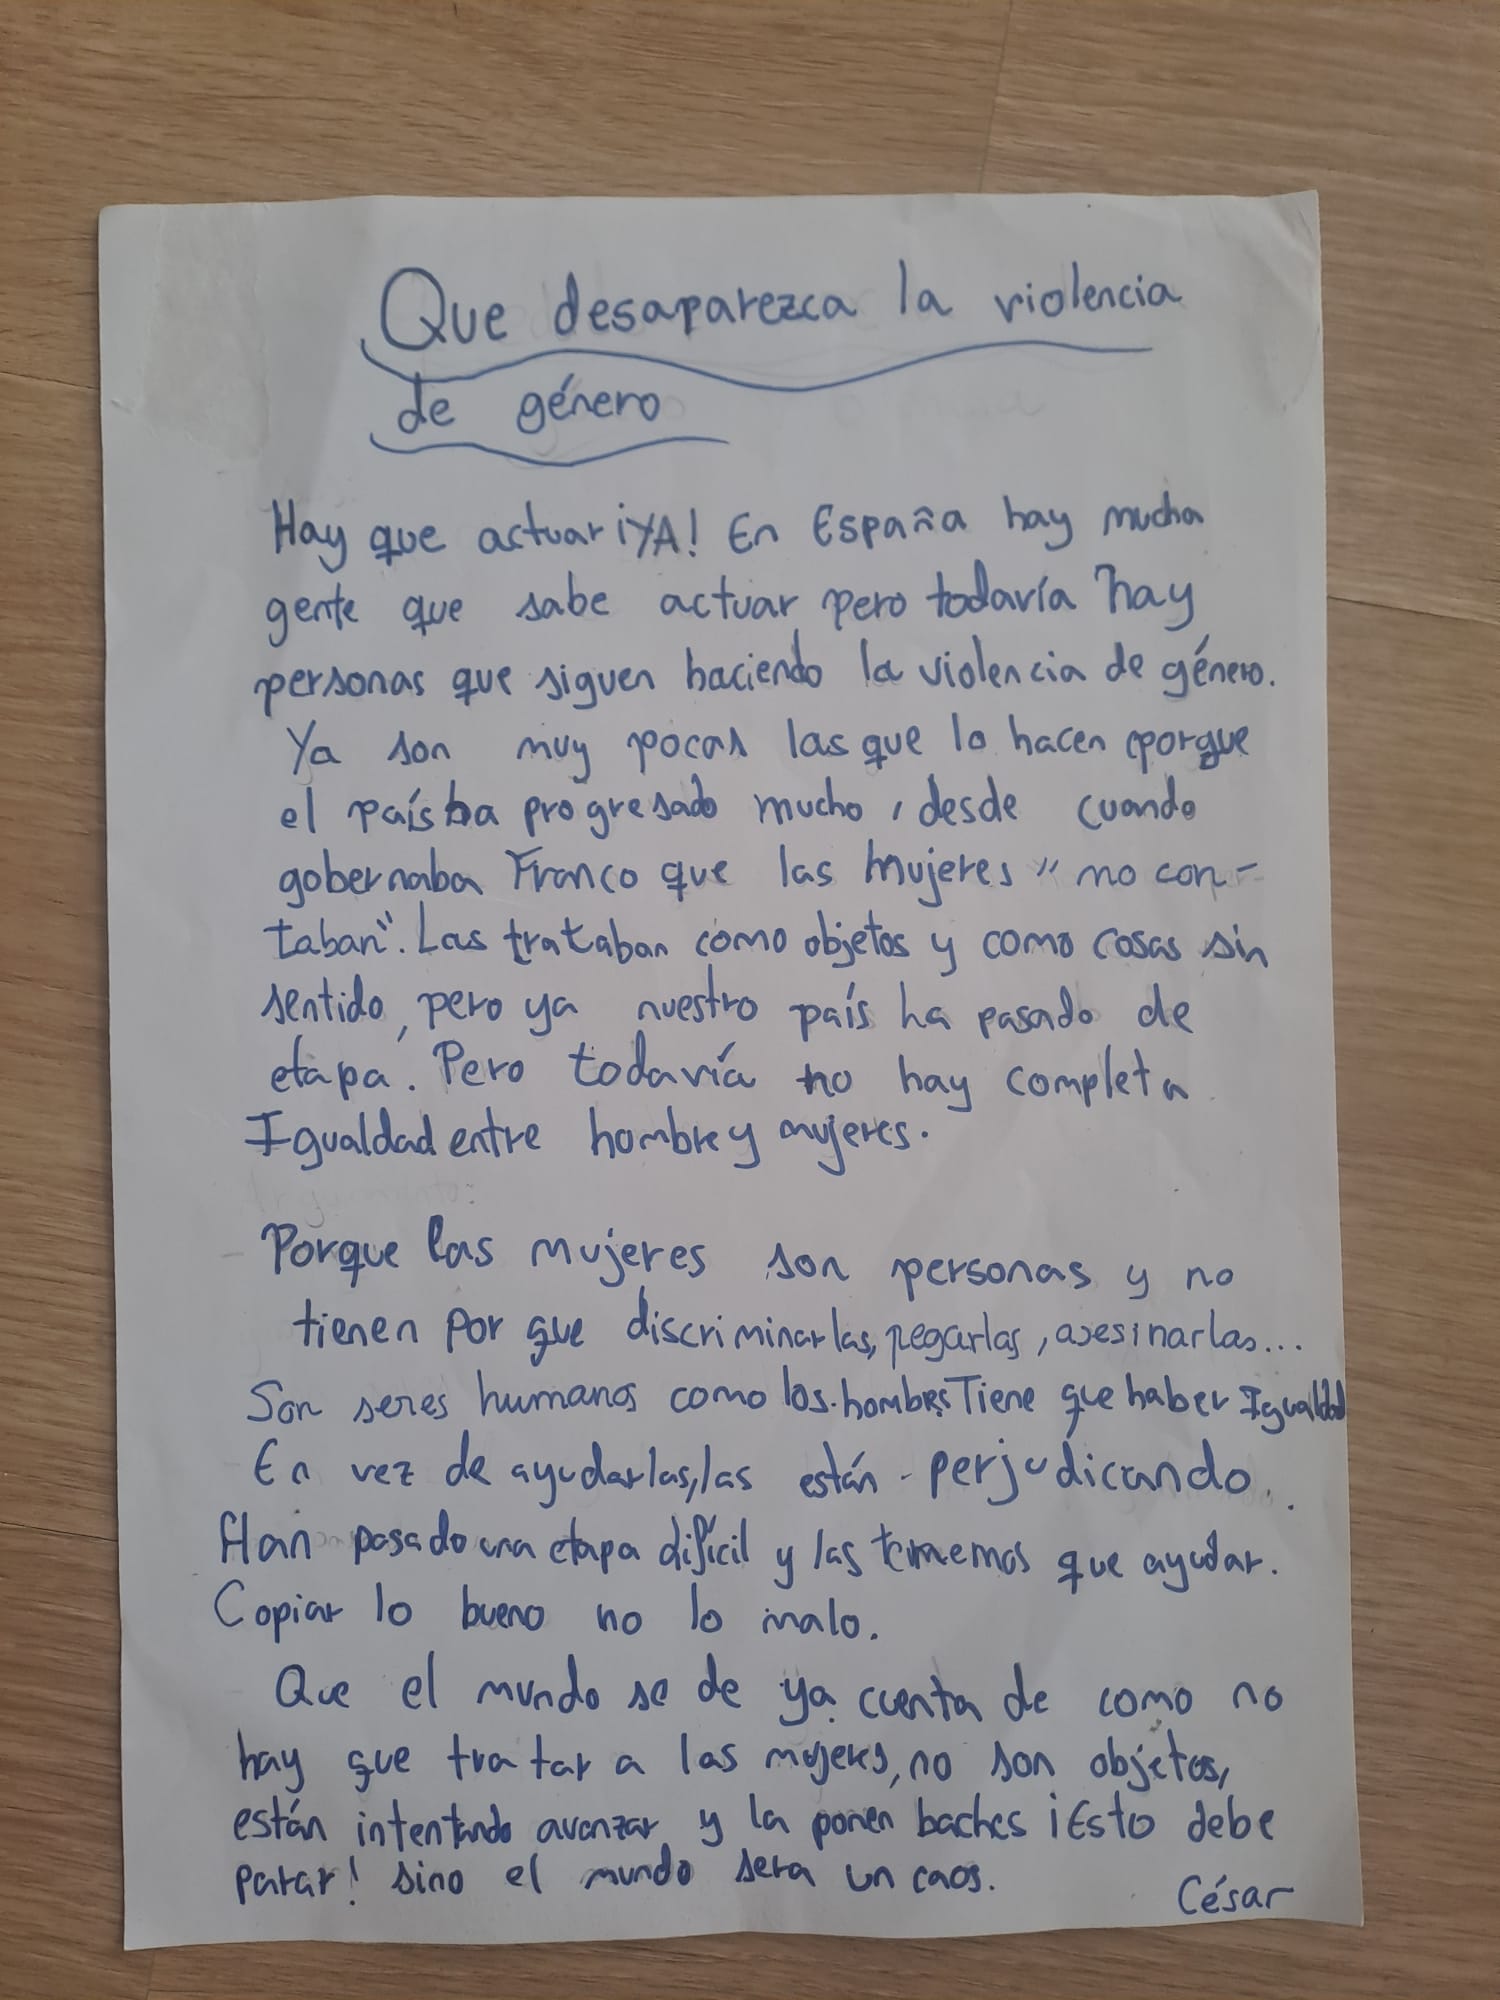 Que desaparezca la violencia
de género
Hay que actuar ¡YA! En España hay mucha
gente que sabe actuar pero todavía hay
personas que siguen haciendo la violencia de género.
Ya son muy pocas las que lo hacen porque
el país ha progresado mucho, desde cuando
gobernaba Franco que las mujeres "no con-
taban". Las trataban como objetos y como cosas sin
sentido, pero ya nuestro país ha pasado de
etapa. Pero todavía no hay completa
Igualdad entre hombre y mujeres.
Porque las mujeres son personas y no
tienen por que discriminarlas, pegarlas, asesinarlas...
Son seres humanos como los hombres Tiene que haber Igualdad
En vez de ayudarlas, las están perjudicando.
Han pasado una etapa difícil y las tenemos que ayudar.
Copiar lo bueno no lo malo.
Que el mundo se de ya cuenta de como no
hay que tratar a las mujeres, no son objetos,
están intentando avanzar y la ponen baches ¡Esto debe
parar! sino el mundo sera un caos.
César